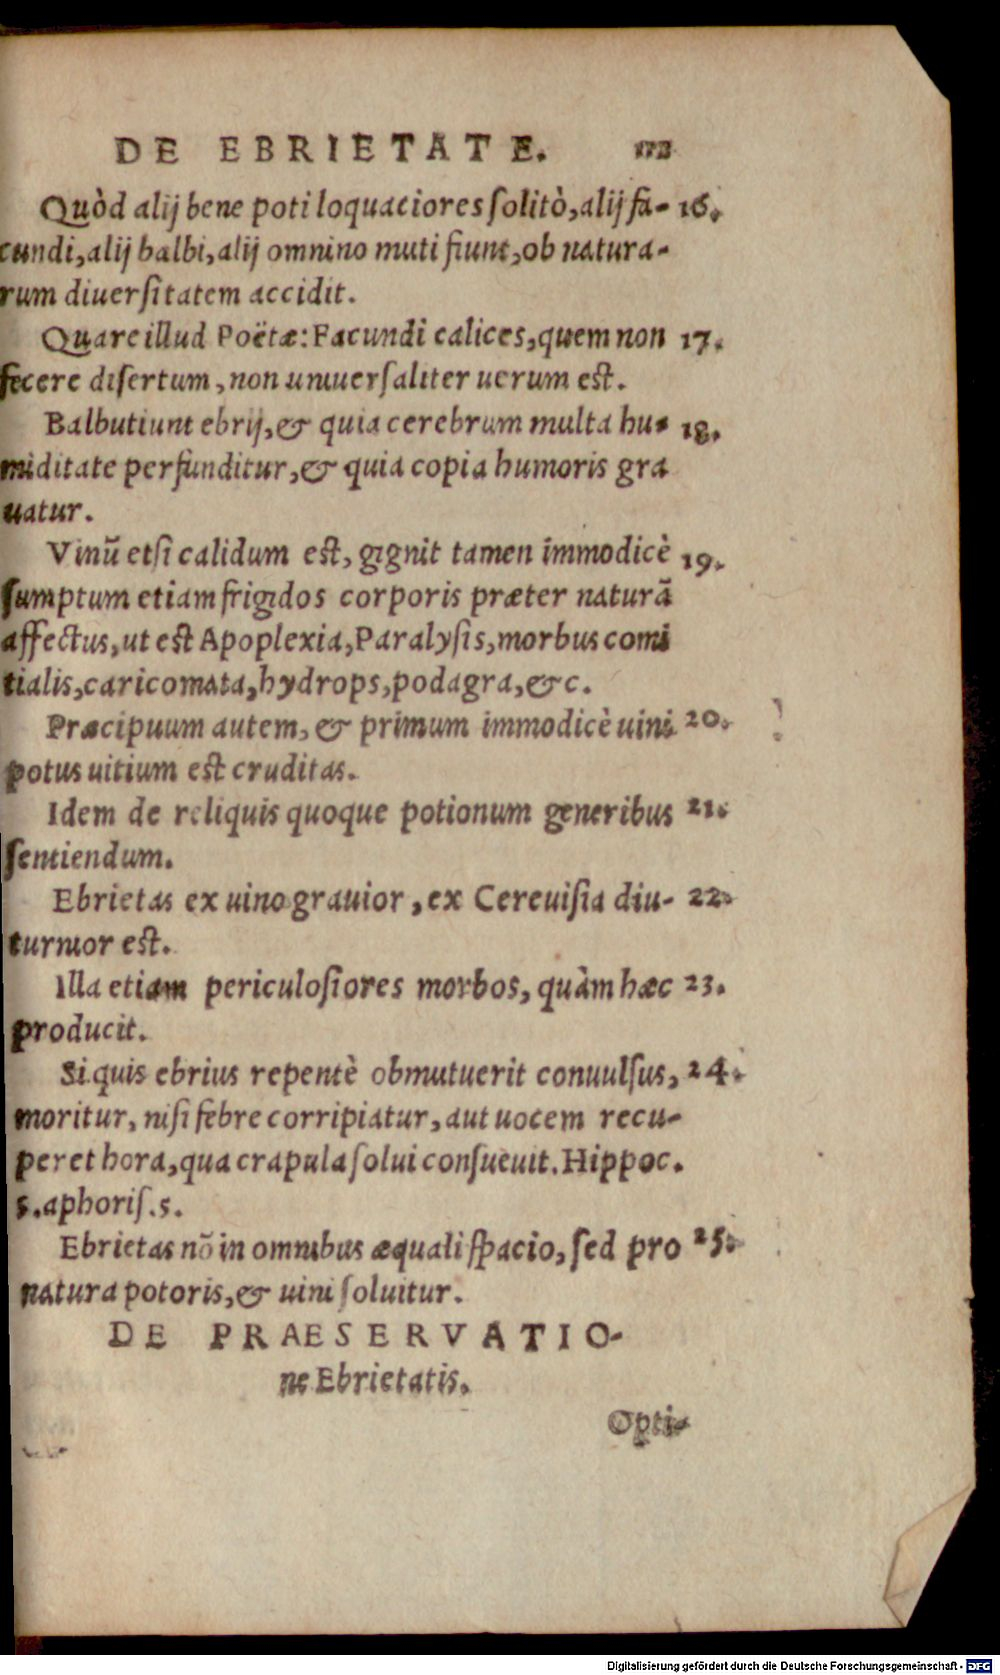 DE EBRIETATE.
Quòd alij bene poti loquaciores ſolitò, alij fa- 16.
cundi, alij balbi, alij omnino muti fiunt, ob natura-
rum diuerſitatem accidit.
Quare illud Poëtæ: Facundi calices, quem non 17.
fecere diſertum, non uniuerſaliter uerum est.
Balbutiunt ebrij, & quia cerebrum multa hu- 18.
miditate perfunditur, & quia copia humoris gra
uatur.
Vinũ etſi calidum est, gignit tamen immodicè 19.
ſumptum etiam frigidos corporis præter naturã
affectus, ut est Apoplexia, Paralyſis, morbus comi
tialis, caricomata, hydrops, podagra, &c.
Præcipuum autem, & primum immodicè uini 20.
potus uitium est cruditas.
Idem de reliquis quoque potionum generibus 21.
ſentiendum.
Ebrietas ex uino grauior, ex Cereuiſia diu- 22.
turnior est.
Illa etiam periculoſiores morbos, quàm hæc 23.
producit.
Si quis ebrius repentè obmutuerit conuulſus, 24.
moritur, niſi febre corripiatur, aut uocem recu-
peret hora, qua crapula ſolui conſueuit. Hippoc.
5. aphoriſ. 5.
Ebrietas nõ in omnibus æquali ſpacio, ſed pro 25.
natura potoris, & uini ſoluitur.
DE PRAESERVATIO-
ne Ebrietatis.
Opti-
Digitalisierung gefördert durch die Deutsche Forschungsgemeinschaft - DFG